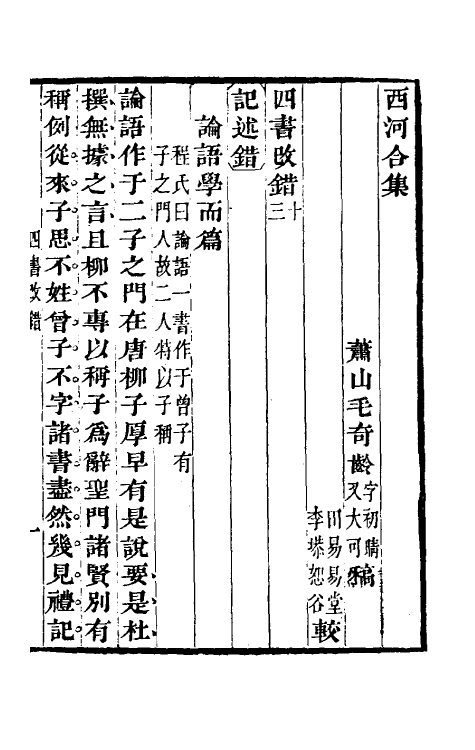 西河合集
蕭山毛奇齡字初晴又大可稿
田易易堂李塨恕谷較
四書改錯十三
記述錯
論語學而篇
程氏曰論語一書作于曾子有
子之門人故二人特以子稱
論語作于二子之門在唐柳子厚早有是說要是杜
撰無據之言且柳不專以稱子爲辭聖門諸賢別有
稱例從來子思不姓曾子不字諸書盡然幾見禮記
四書改錯
一